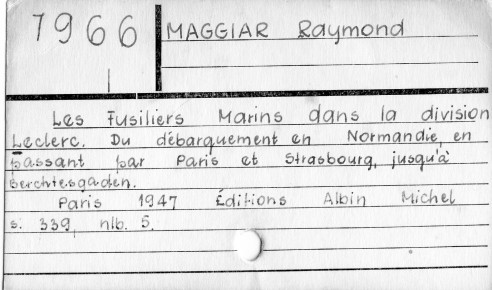 7966
MAGGIAR Raymond
Les Fusiliers Marins dans la division
Leclerc. Du débarquement en Normandie, en
passant par Paris et Strasbourg, jusqu'à
Berchtesgaden.
Paris 1947 Éditions Albin Michel
s. 339, nlb. 5.